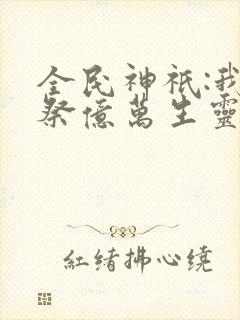 全民神祇:我
祭億萬生靈
紅绪拂心繞